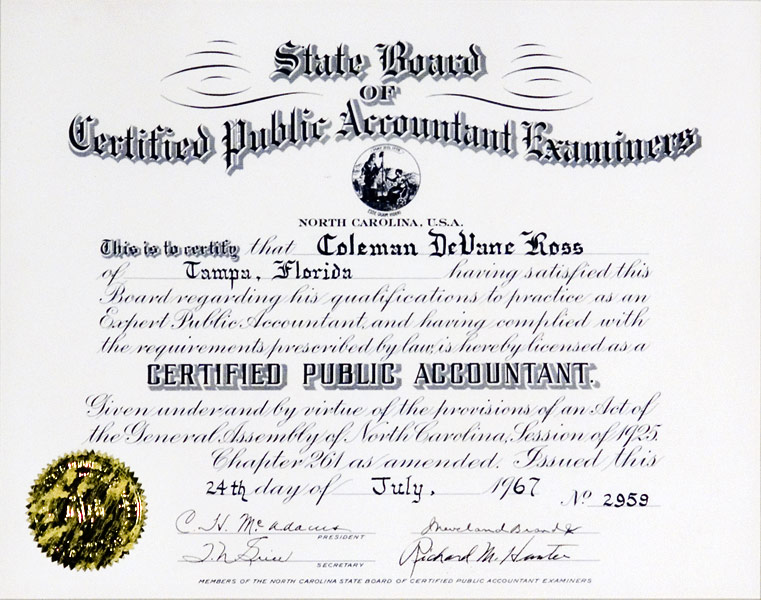 State Board
OF
Certified Public Accountant Examiners
ESSE QUAM VIDERI
NORTH CAROLINA, U.S.A.
This is to certify that Coleman DeVane Ross
of Tampa, Florida having satisfied this
Board regarding his qualifications to practice as an
Expert Public Accountant, and having complied with
the requirements prescribed by law, is hereby licensed as a
CERTIFIED PUBLIC ACCOUNTANT.
Given under and by virtue of the provisions of an Act of
the General Assembly of North Carolina, Session of 1925.
Chapter 261 as amended. Issued this
24th day of July, 1967 No 2959
C. H. McAdams
PRESIDENT
Richard M. Hunter
SECRETARY
MEMBERS OF THE NORTH CAROLINA STATE BOARD OF CERTIFIED PUBLIC ACCOUNTANT EXAMINERS